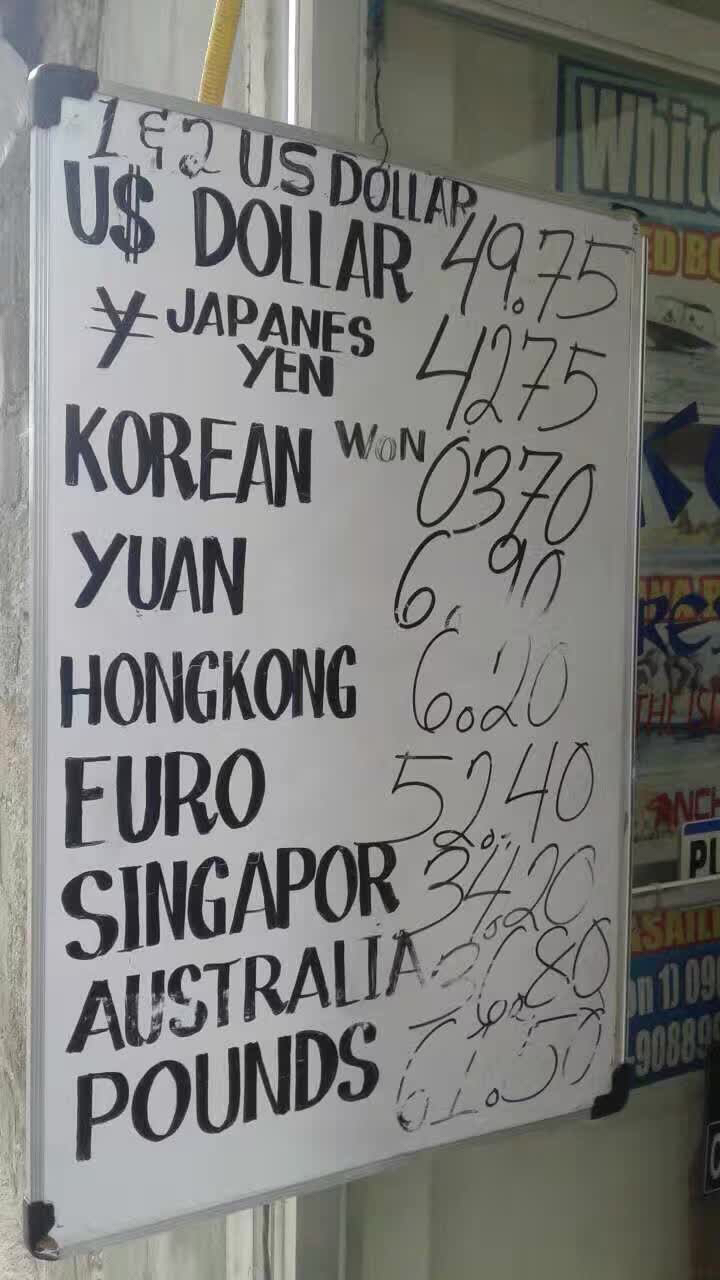 1 & 2 US DOLLAR
U$ DOLLAR 49.75
¥ JAPANES YEN 4275
KOREAN WON 0370
YUAN 6.90
HONGKONG 6.20
EURO 52.40
SINGAPOR 34.20
AUSTRALIA 36.80
POUNDS 61.50
White
ED BO
THE ISL
ANCH
PU
SAIL
on 1) 09
-90889